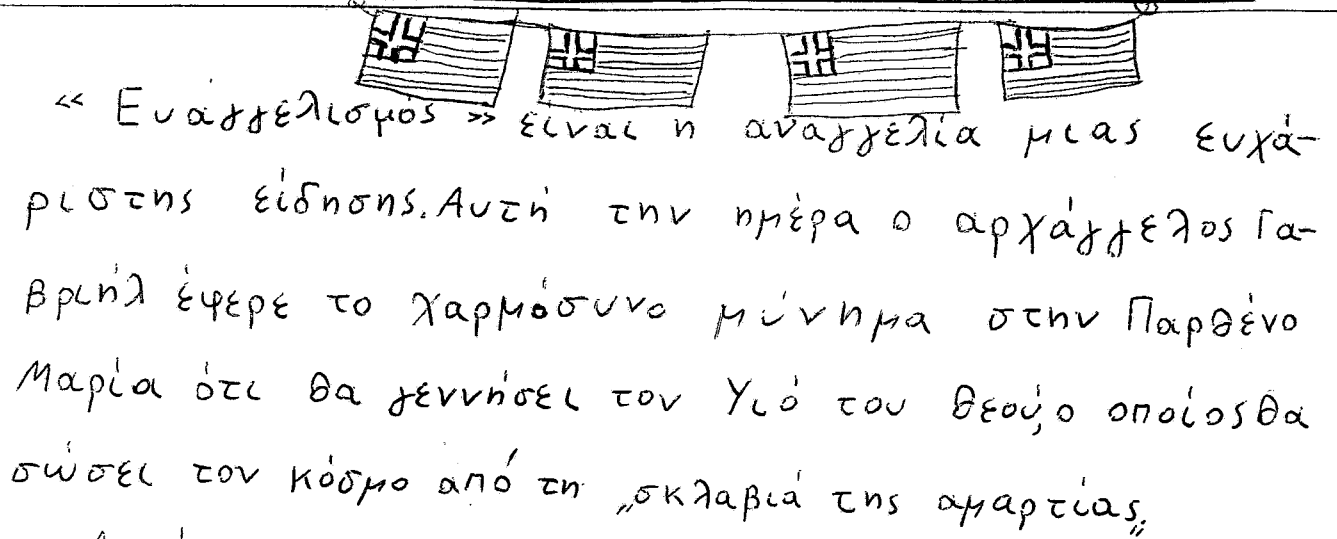 « Ευάγγελισμός » είναι η αναγγελία μιας ευχά-
ριστης είδησης. Αυτή την ημέρα ο αρχάγγελος Γα-
βριήλ έφερε το χαρμόσυνο μύνημα στην Παρθένο
Μαρία ότι θα γεννήσει τον Υιό του θεού, ο οποίος θα
σώσει τον κόσμο από τη „σκλαβιά της αμαρτίας„